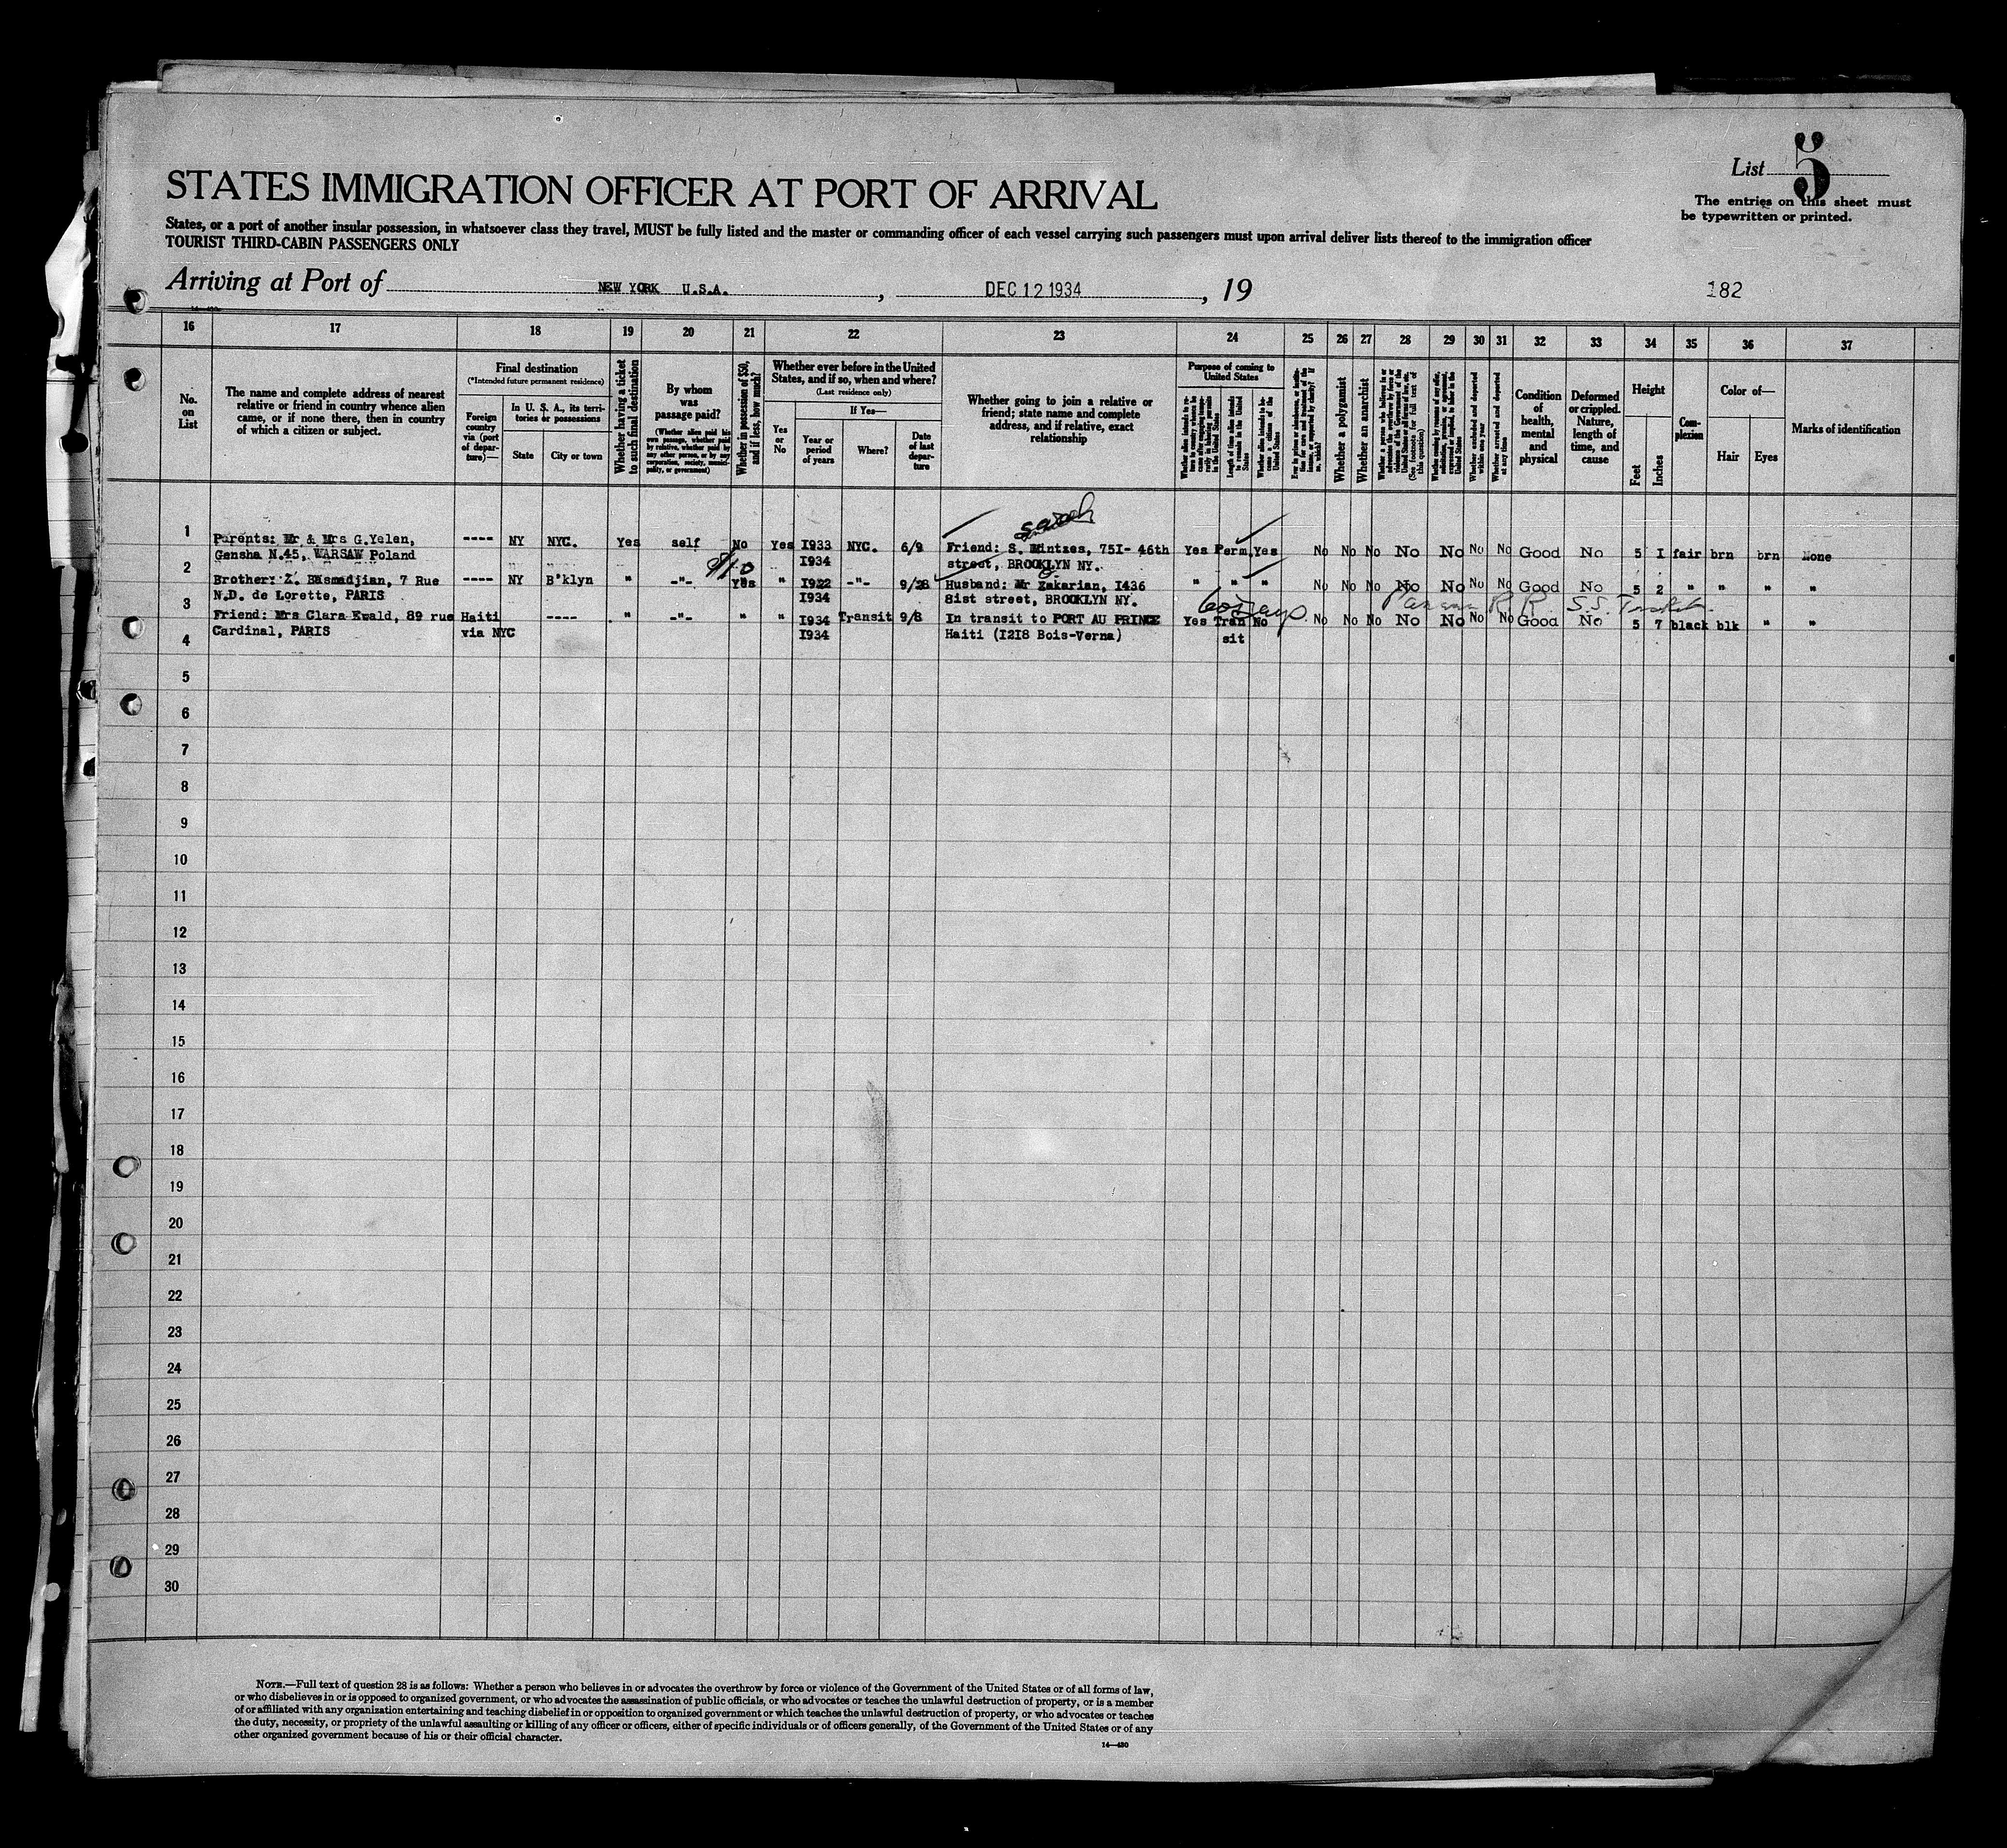 List 5
STATES IMMIGRATION OFFICER AT PORT OF ARRIVAL
The entries on this sheet must
be typewritten or printed.
States, or a port of another insular possession, in whatsoever class they travel, MUST be fully listed and the master or commanding officer of each vessel carrying such passengers must upon arrival deliver lists thereof to the immigration officer
TOURIST THIRD-CABIN PASSENGERS ONLY
Arriving at Port of NEW YORK U.S.A. , DEC 12 1934 , 19
182
16 17 18 19 20 21 22 23 24 25 26 27 28 29 30 31 32 33 34 35 36 37
No.
on
List
The name and complete address of nearest
relative or friend in country whence alien
came, or if none there, then in country
of which a citizen or subject.
Final destination
(*Intended future permanent residence)
Foreign
country
via (port
of depar-
ture)—
In U. S. A., its terri-
tories or possessions
State
City or town
Whether having a ticket
to such final destination
By whom
was
passage paid?
(Whether alien paid his
own passage, whether paid
by relative, whether paid by
any other person, or by any
corporation, society, munici-
pality, or government)
Whether in possession of $50,
and if less, how much?
Whether ever before in the United
States, and if so, when and where?
(Last residence only)
Yes
or
No
If Yes—
Year or
period
of years
Where?
Date
of last
depar-
ture
Whether going to join a relative or
friend; state name and complete
address, and if relative, exact
relationship
Purpose of coming to
United States
Length of time alien intends
to remain in the United
States
Whether alien intends to be-
come a citizen of the
United States
Whether a polygamist
Whether an anarchist
Whether excluded and deported
within one year
Whether arrested and deported
at any time
Condition
of
health,
mental
and
physical
Deformed
or crippled.
Nature,
length of
time, and
cause
Height
Feet
Inches
Com-
plexion
Color of—
Hair
Eyes
Marks of identification
Sarah
1 Parents: Mr & Mrs G.Yelen, ---- NY NYC. Yes self No Yes I933 NYC. 6/9 Friend: S. Mintzes, 75I- 46th Yes Perm. Yes No No No No No No No Good No 5 I fair brn brn None
Gensha N.45, WARSAW Poland I934 street, BROOKLYN NY.
2 Brother: Z. Basmadjian, 7 Rue ---- NY B'klyn " -"- Yes " I922 -"- 9/28 Husband: Mr Zakarian, I436 " " " No No No No No No No Good No 5 2 " " " "
N.D. de Lorette, PARIS I934 8Ist street, BROOKLYN NY.
60 days Panama R R S.S.
3 Friend: Mrs Clara Ewald, 89 rue Haiti ---- " -"- " " I934 Transit 9/8 In transit to PORT AU PRINCE Yes Tran No No No No No No No No Good No 5 7 black blk " "
Cardinal, PARIS via NYC I934 Haiti (I2I8 Bois-Verna) sit
4
5
6
7
8
9
10
11
12
13
14
15
16
17
18
19
20
21
22
23
24
25
26
27
28
29
30
NOTE.—Full text of question 28 is as follows: Whether a person who believes in or advocates the overthrow by force or violence of the Government of the United States or of all forms of law,
or who disbelieves in or is opposed to organized government, or who advocates the assassination of public officials, or who advocates or teaches the unlawful destruction of property, or is a member
of or affiliated with any organization entertaining and teaching disbelief in or opposition to organized government or which teaches the unlawful destruction of property, or who advocates or teaches
the duty, necessity, or propriety of the unlawful assaulting or killing of any officer or officers, either of specific individuals or of officers generally, of the Government of the United States or of any
other organized government because of his or their official character.
14—430